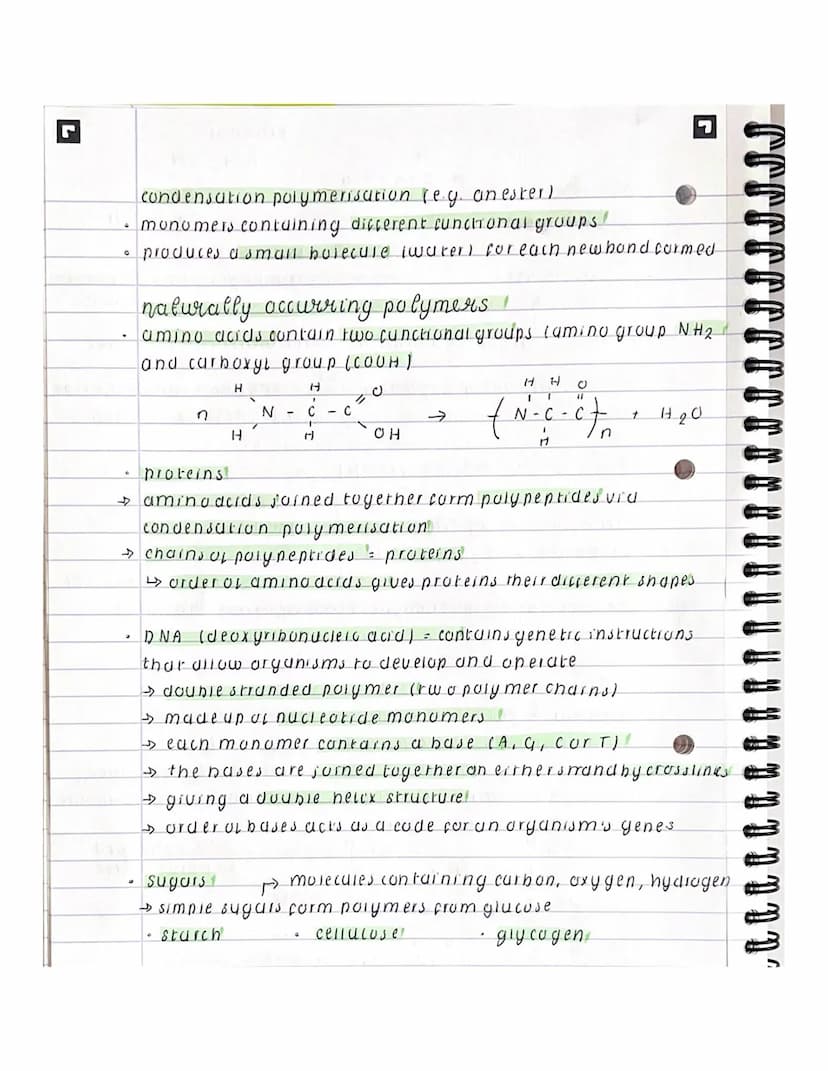 condensation polymerisation (e.g. an ester)
· monomers containing different functional groups
· produces a small molecule (water) for each new bond formed
naturally occurring polymers
· amino acids contain two functional groups (amino group NH2
and carboxyl group (COOH)
H H O H H O
n N - C - C → ( N - C - C )n + H2O
H H OH H
· proteins
→ amino acids joined together form polypeptides via
condensation polymerisation
→ chains of polypeptides = proteins
↳ order of amino acids gives proteins their different shapes
· DNA (deoxyribonucleic acid) = contains genetic instructions
that allow organisms to develop and operate
→ double stranded polymer (two polymer chains)
→ made up of nucleotide monomers
→ each monomer contains a base (A, G, C or T)
→ the bases are joined together on either strand by crosslines
→ giving a double helix structure
→ order of bases acts as a code for an organism's genes
· sugars ↱ molecules containing carbon, oxygen, hydrogen
→ simple sugars form polymers from glucose
· starch · cellulose · glycogen